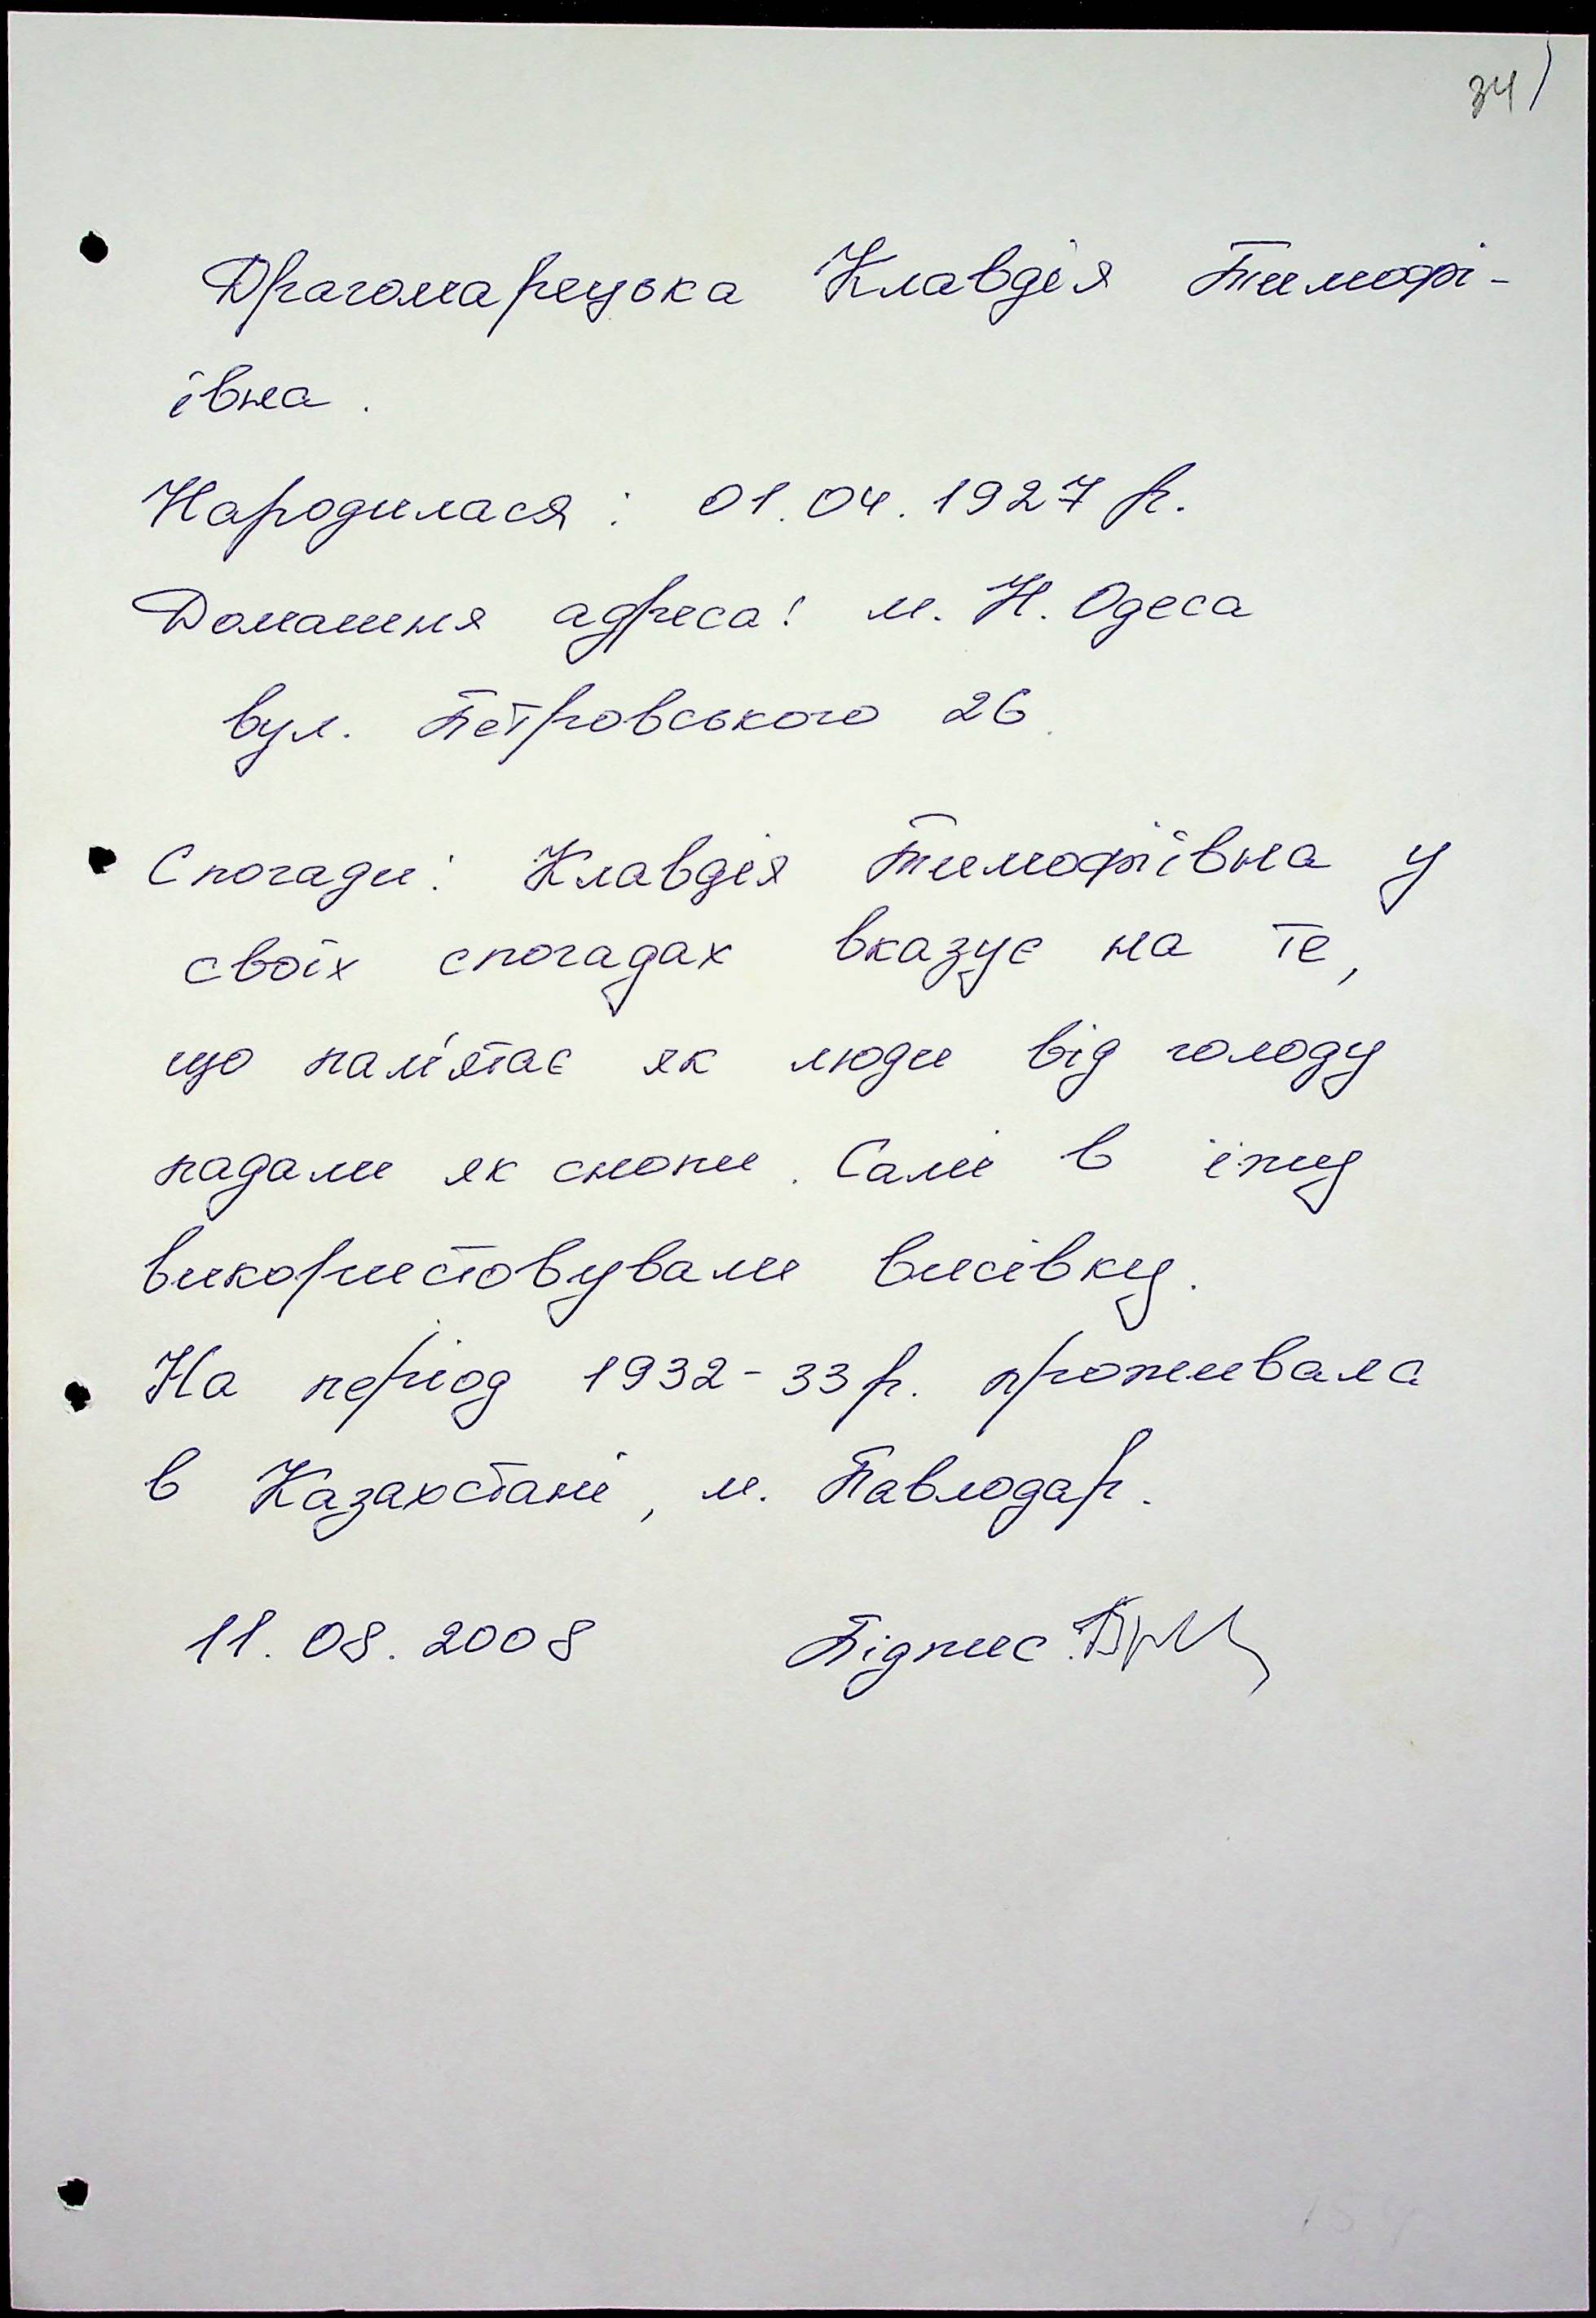 34)
Драгомарецька Клавдія Тимофі-
ївна.
Народилася: 01.04.1927 р.
Домашня адреса: м. Н. Одеса
вул. Петровського 26.
Спогади: Клавдія Тимофіївна у
своїх спогадах вказує на те,
що пам'ятає як люди від голоду
падали як снопи. Самі в їжу
використовували висівку.
На період 1932-33 р. проживала
в Казахстані, м. Павлодар.
11.08.2008 Підпис